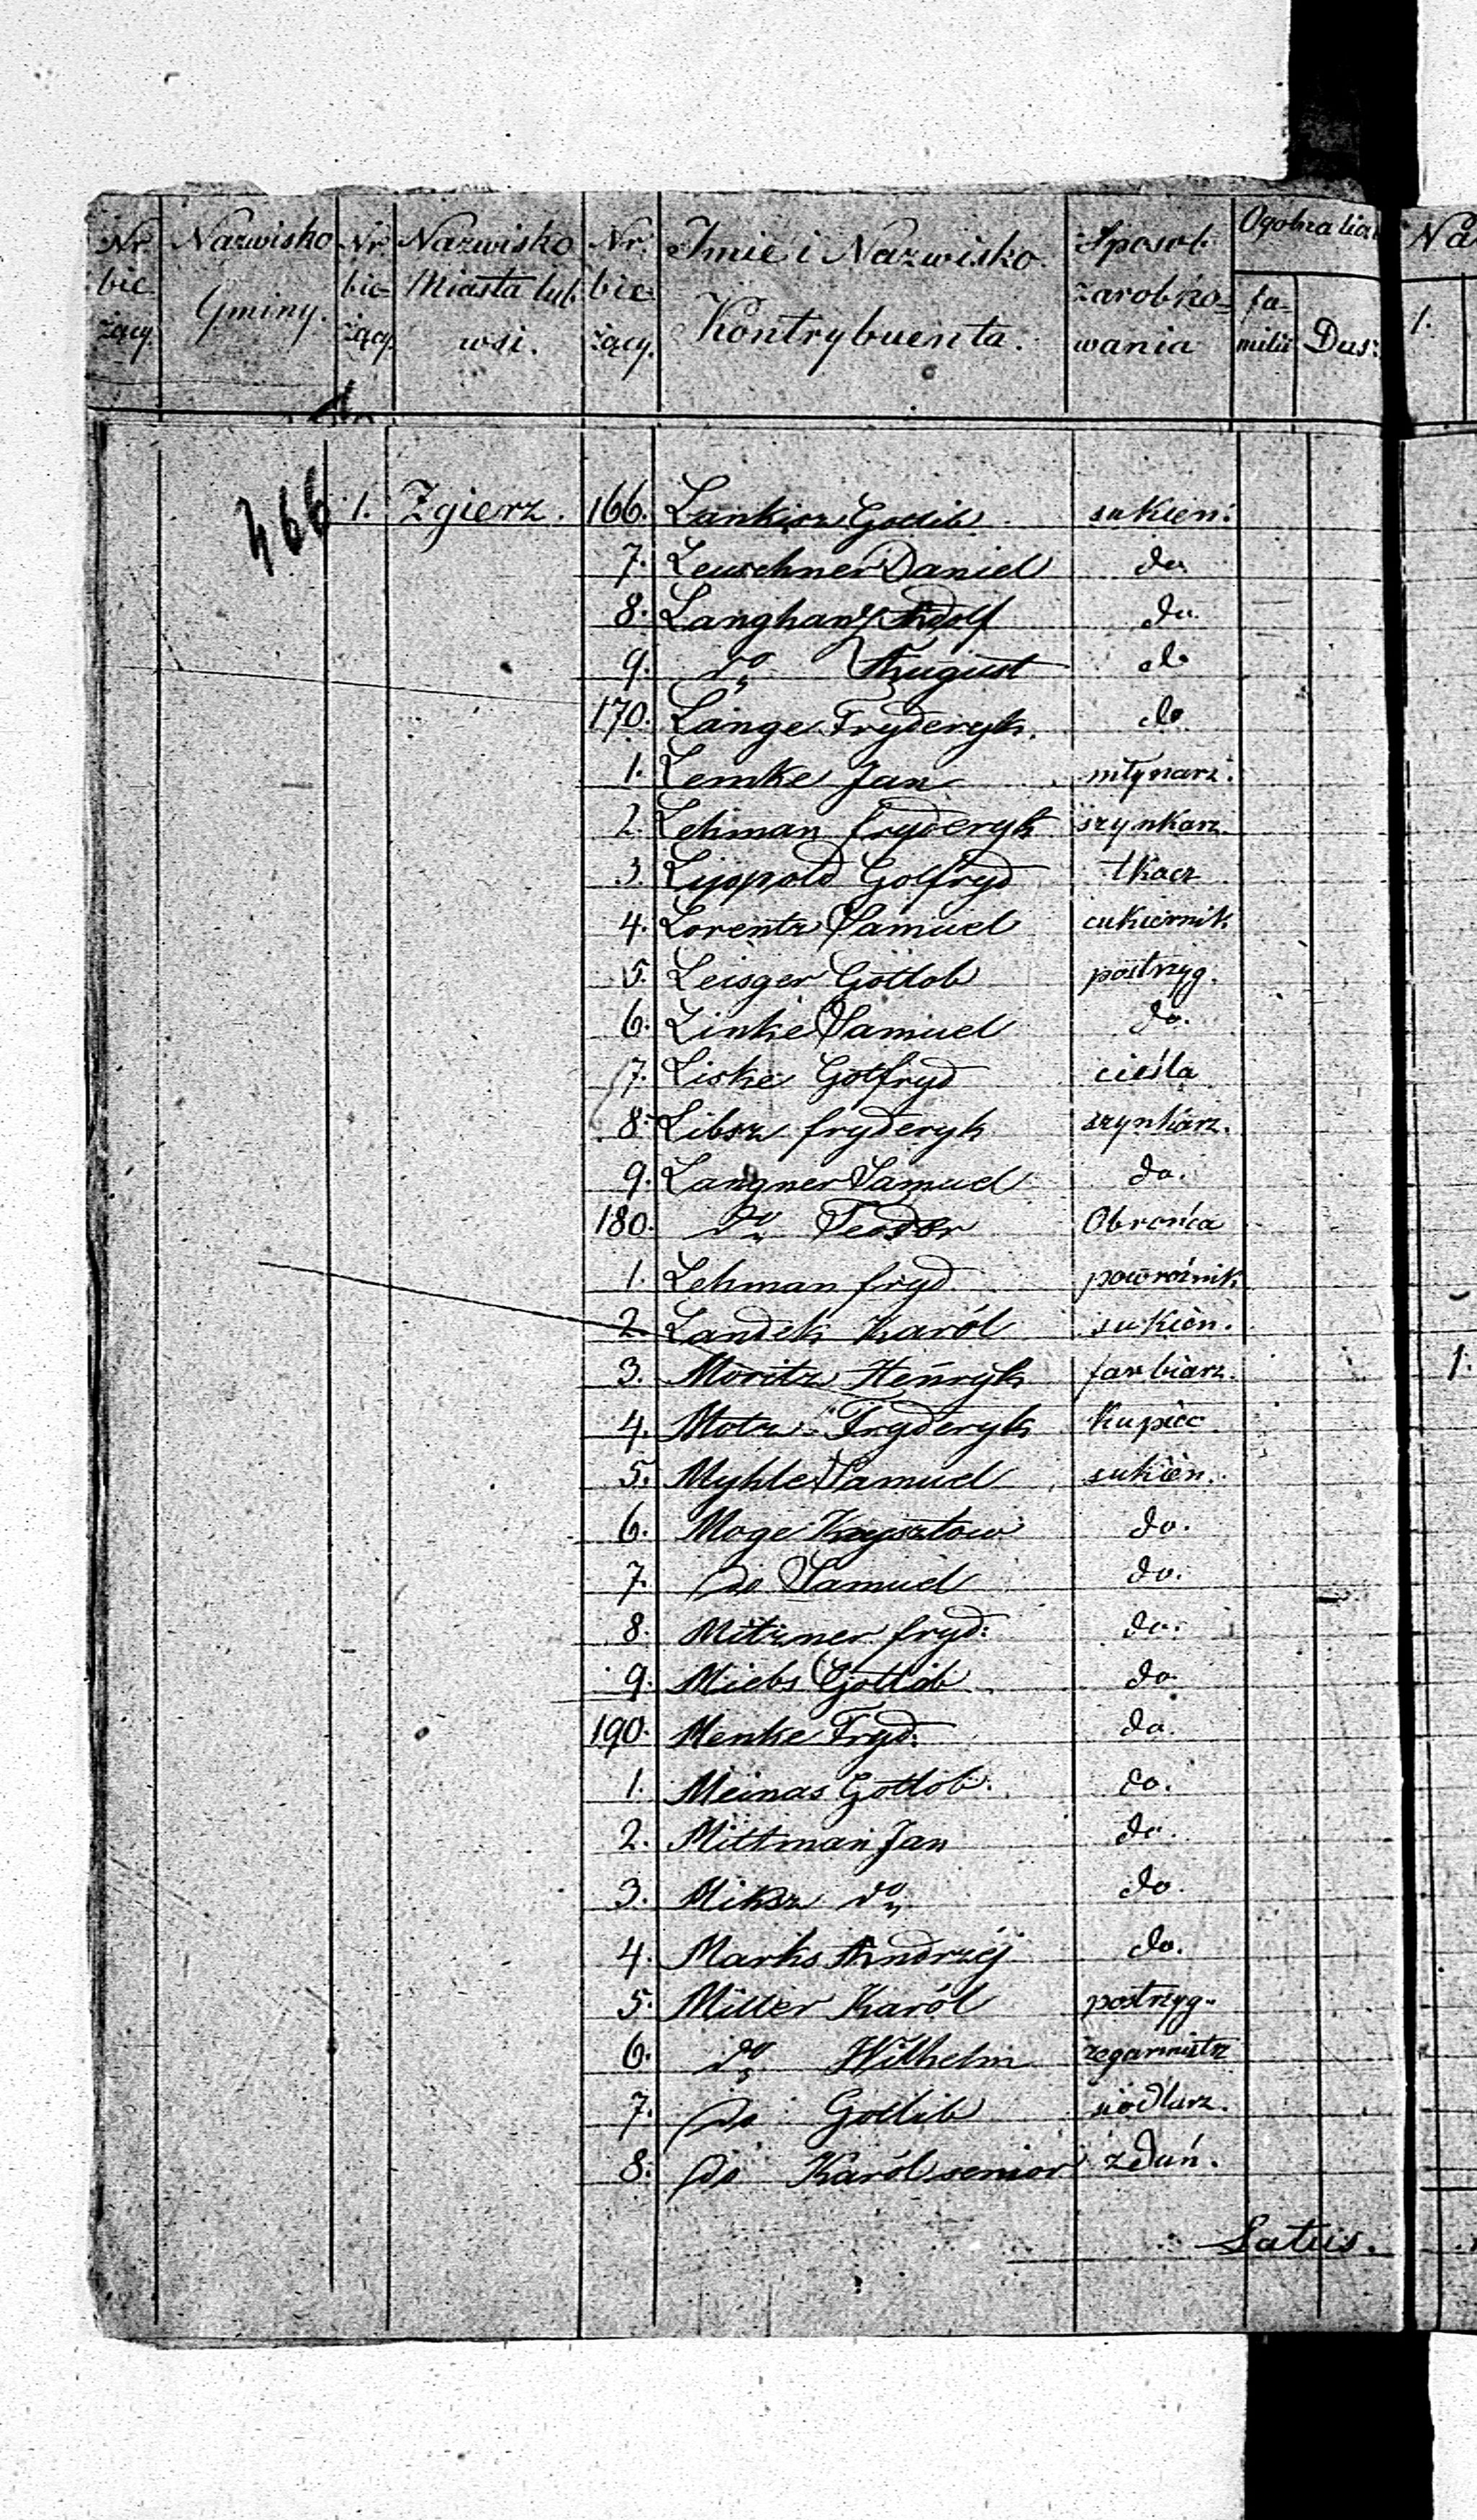 Nr. bie- żący. Nazwisko Gminy. Nr. bie- żący. Nazwisko Miasta lub wsi. Nr. bie- żący. Imie i Nazwisko Kontrybuenta. Sposob zarobko- wania Ogolna licz fa- milii Dusz
Na
1.
466 1. Zgierz. 166. Lankisz Gotlib sukien.
7. Leuschner Daniel do
8. Langhanz Adolf do.
9. do August do
170. Lange Fryderyk. do
1. Lemke Jan młynarz.
2. Lehman fryderyk szynkarz.
3. Lyppold Golfryd tkacz
4. Lorentz Samuel cukiernik
5. Leisger Gotlob postrzyg.
6. Linke Samuel do.
7. Liske Golfryd cieśla
8. Libsz fryderyk szynkarz.
9. Langner Samuel do.
180. do Teodor Obrońca
1. Lehman fryd. powroźnik
2. Landek Karól sukien.
3. Moritz Henryk farbiarz. 1.
4. Motz Fryderyk Kupiec.
5. Myhle Samuel sukien.
6. Moge Krysztow do.
7. do Samuel do.
8. Mitzner fryd: do.
9. Miebs Gotlob do
190. Menke Fryd: do.
1. Meinas Gotlob. do.
2. Mittman Jan do.
3. Miksz do do.
4. Marks Andrzéj do.
5. Miller Karól postrzyg.
6. do Wilhelm zegarmistrz
7. do Gotlib siodlarz.
8. do Karól senior zdun.
Latus.